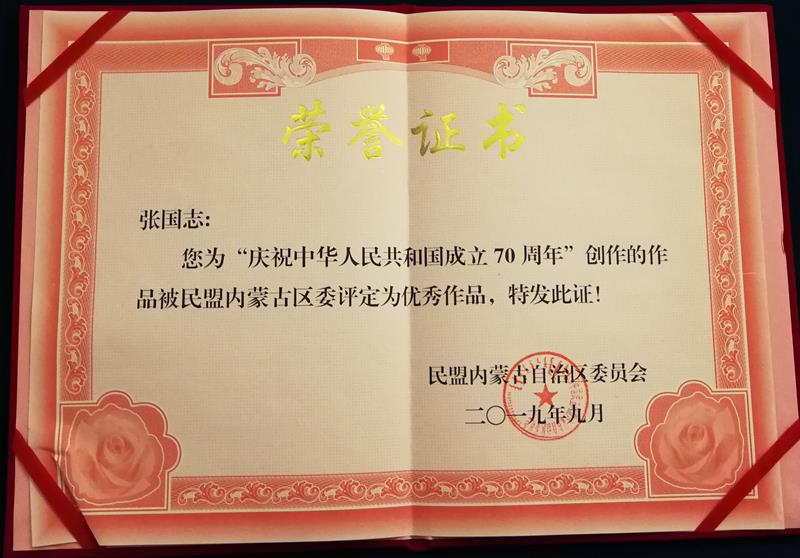 荣誉证书
张国志:
您为“庆祝中华人民共和国成立70周年”创作的作
品被民盟内蒙古区委评定为优秀作品，特发此证！
民盟内蒙古自治区委员会
二〇一九年九月